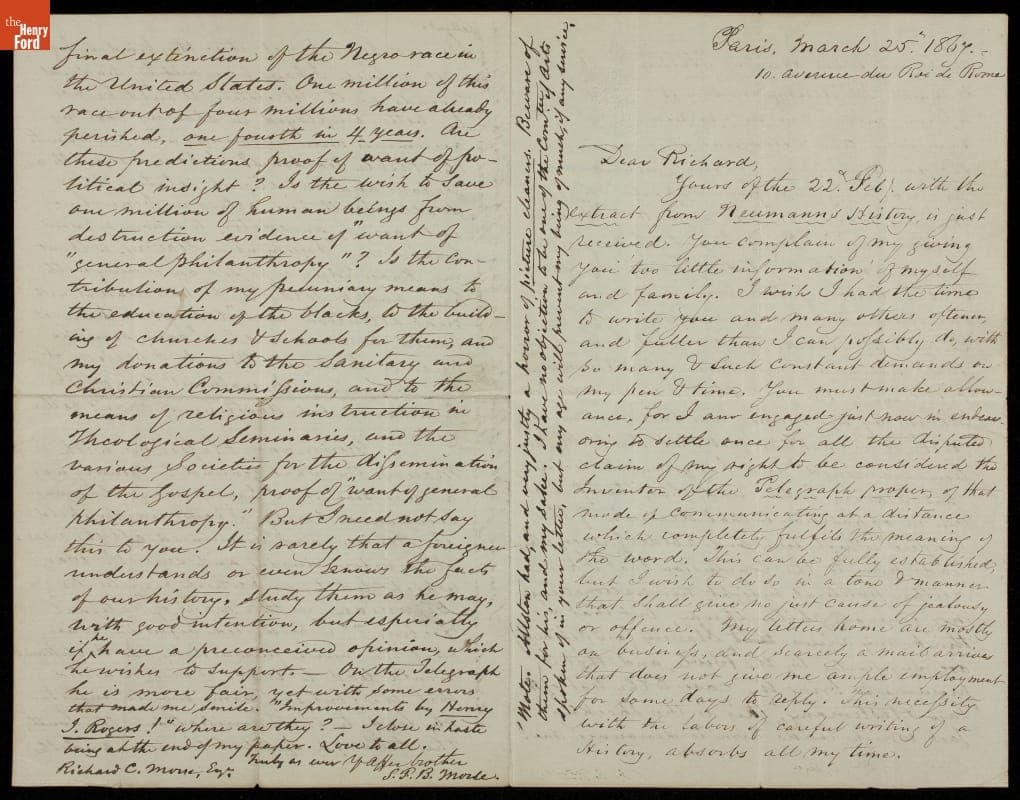 the Henry Ford
Paris, March 25th 1867.-
10. avenue du Roi de Rome
Dear Richard,
Yours of the 22d Feby. with the
extract from Neumanns History, is just
received. You complain of my giving
you 'too little information' of myself
and family. I wish I had the time
to write you and many others oftener,
and fuller than I can possibly do, with
so many & such constant demands on
my pen & time. You must make allow-
ance, for I am engaged just now in endeav-
oring to settle once for all the disputed
claim of my right to be considered the
Inventor of the Telegraph proper, of that
mode of communicating at a distance
which completely fulfils the meaning of
the word. This can be fully established,
but I wish to do so in a tone & manner
that shall give no just cause of jealousy
or offence. My letters home are mostly
on business, and scarcely a mail arrives
that does not give me ample employment
for some days to reply. This necessity
with the labors of careful writing of a
History, absorbs all my time.
final extinction of the Negro race in
the United States. One million of this
race out of four millions have already
perished, one fourth in 4 years. Are
these predictions proof of want of po-
litical insight? Is the wish to save
one million of human beings from
destruction evidence of "want of
"general philanthropy"? Is the con-
tribution of my pecuniary means to
the education of the blacks, to the build-
ing of churches & schools for them, and
my donations to the Sanitary and
Christian Commissions, and to the
means of religious instruction in
Theological Seminaries, and the
various Societies for the dissemination
of the Gospel, proof of "want of general
philanthropy." But I need not say
this to you. It is rarely that a foreigner
understands or even knows the facts
of our history. Study them as he may,
with good intention, but especially
if he have a preconceived opinion, which
he wishes to support. - On the Telegraph
he is more fair, yet with some errors
that made me smile. "Improvements by Henry
J. Rogers!" where are they? - I close in haste
being at the end of my paper. Love to all.
Truly as ever Yr affec brother
Richard C. Morse, Esqr. S. F. B. Morse.
Note. Allston had, and very justly a horror of picture cleaners. Beware of
them for his, and my sake. I have no objection to be one of the Comtee of Arts
spoken of in your letter, but my age will prevent my being of much, if any service.